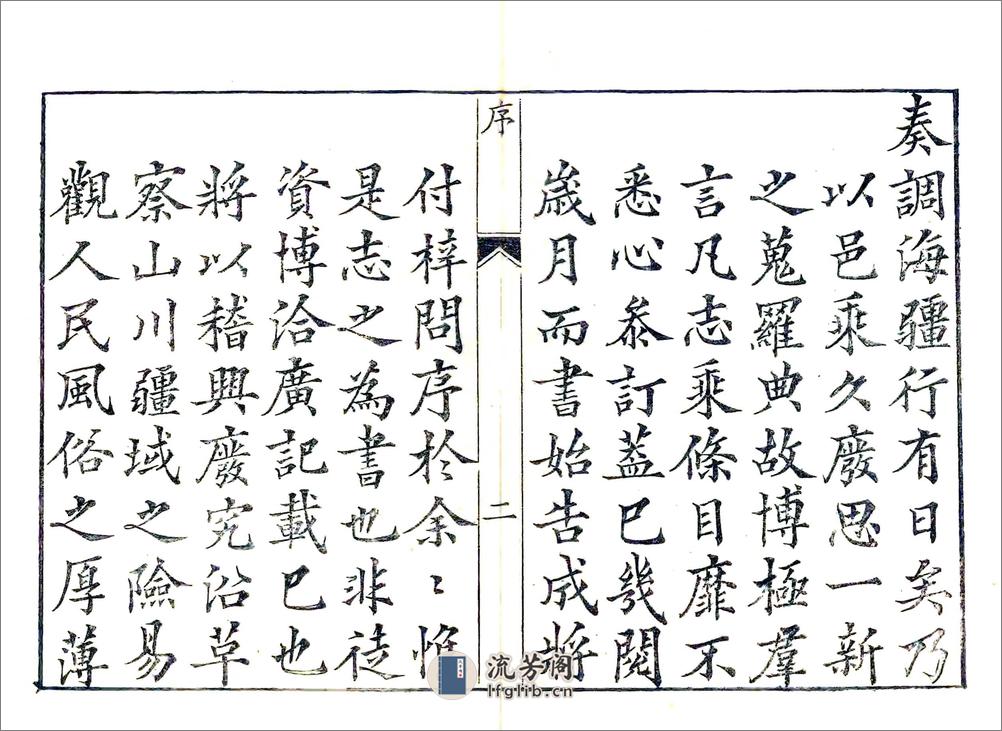 奏調海疆行有日矣乃
以邑乘久廢思一新
之蒐羅典故博極羣
言凡志乘條目靡不
悉心叅訂葢已幾閱
歲月而書始告成將
序
二
付梓問序於余〻惟
是志之為書也非徒
資博洽廣記載已也
將以稽興廢究沿草
察山川疆域之險易
觀人民風俗之厚薄
流芳閣
lfglib.cn